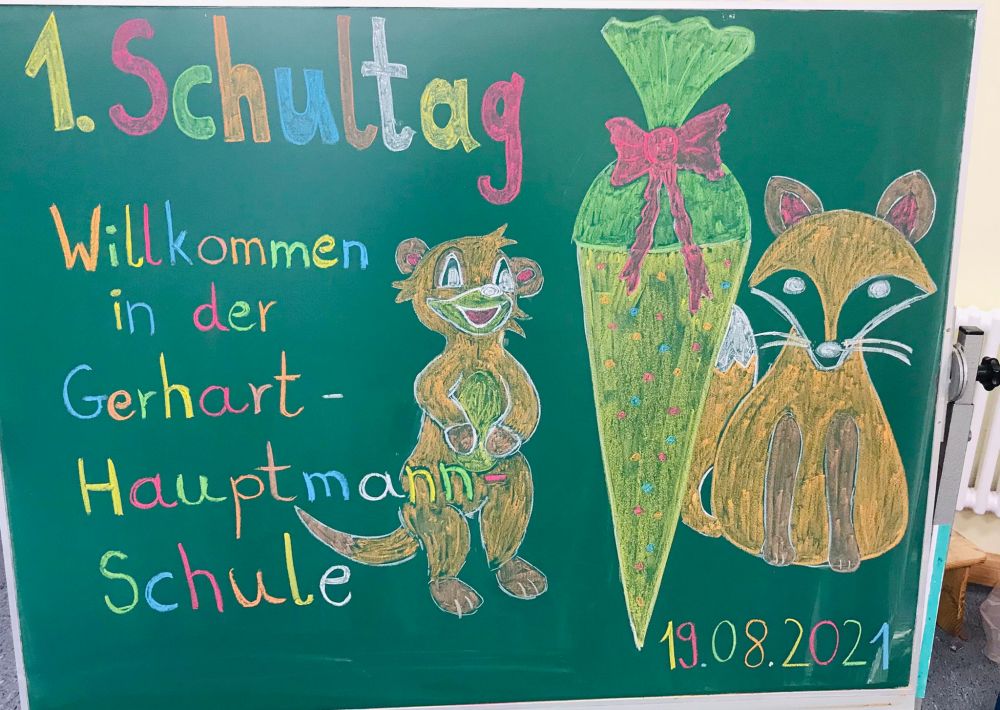 1. Schultag
Willkommen
in der
Gerhart-
Hauptmann-
Schule
19.08.2021